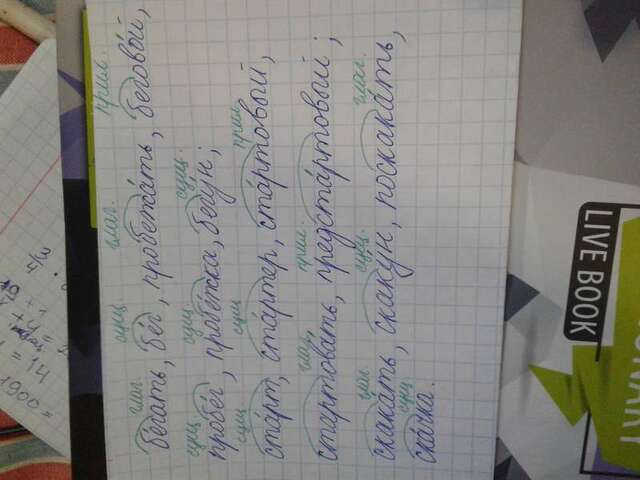 3/4
= 14
1900 =
глаг. сущ. глаг. прил.
бе́гать, бе́г, пробежа́ть, бегово́й,
сущ сущ. сущ.
пробе́г, пробе́жка, бегу́н;
сущ сущ. прил.
ста́рт, ста́ртер, ста́ртовый,
глаг. прил.
стартова́ть, предста́ртовый;
глаг сущ. глаг.
скака́ть, скаку́н, поскака́ть,
сущ
ска́чка.
LIVE BOOK